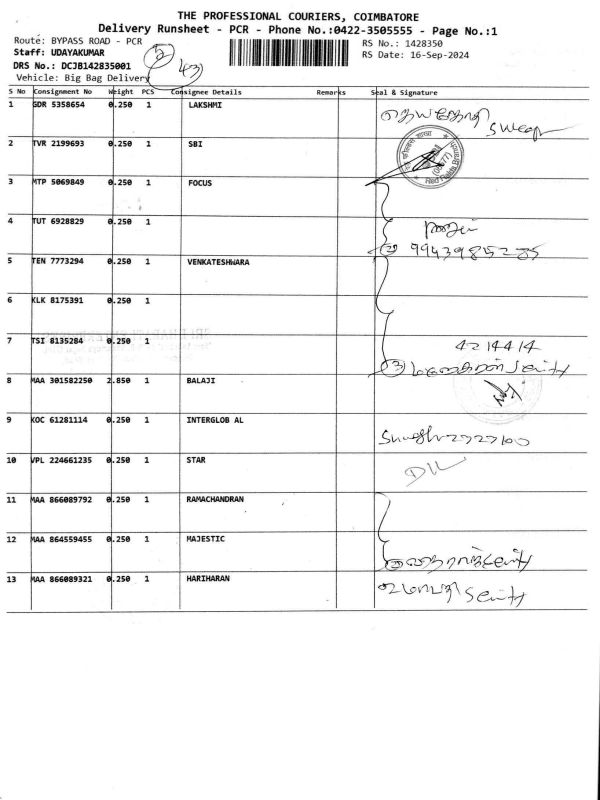 THE PROFESSIONAL COURIERS, COIMBATORE
Delivery Runsheet - PCR - Phone No.:0422-3505555 - Page No.:1
Route: BYPASS ROAD - PCR
RS No.: 1428350
Staff: UDAYAKUMAR
RS Date: 16-Sep-2024
DRS No.: DCJB142835001
Vehicle: Big Bag Delivery
S No Consignment No Weight PCS Consignee Details Remarks Seal & Signature
1 GDR 5358654 0.250 1 LAKSHMI
2 TVR 2199693 0.250 1 SBI
3 MTP 5069849 0.250 1 FOCUS
4 TUT 6928829 0.250 1
5 TEN 7773294 0.250 1 VENKATESHWARA
6 KLK 8175391 0.250 1
4214414
7 TSI 8135284 0.250 1
8 MAA 301582250 2.850 1 BALAJI
9 KOC 61281114 0.250 1 INTERGLOB AL
10 VPL 224661235 0.250 1 STAR
11 MAA 866089792 0.250 1 RAMACHANDRAN
12 MAA 864559455 0.250 1 MAJESTIC
13 MAA 866089321 0.250 1 HARIHARAN